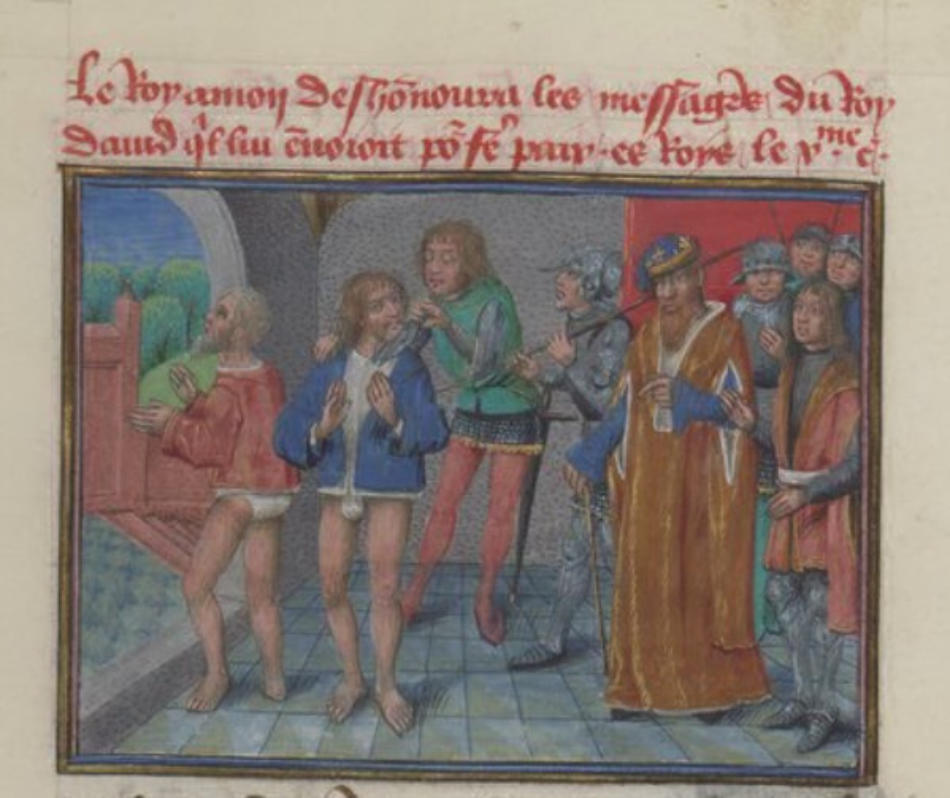 Le Roy amon desho͞noura les messagrẽs du Roy
dauid q̃l lui ẽuoioit põ sẽ paix · es Roys le xme c̃ ·